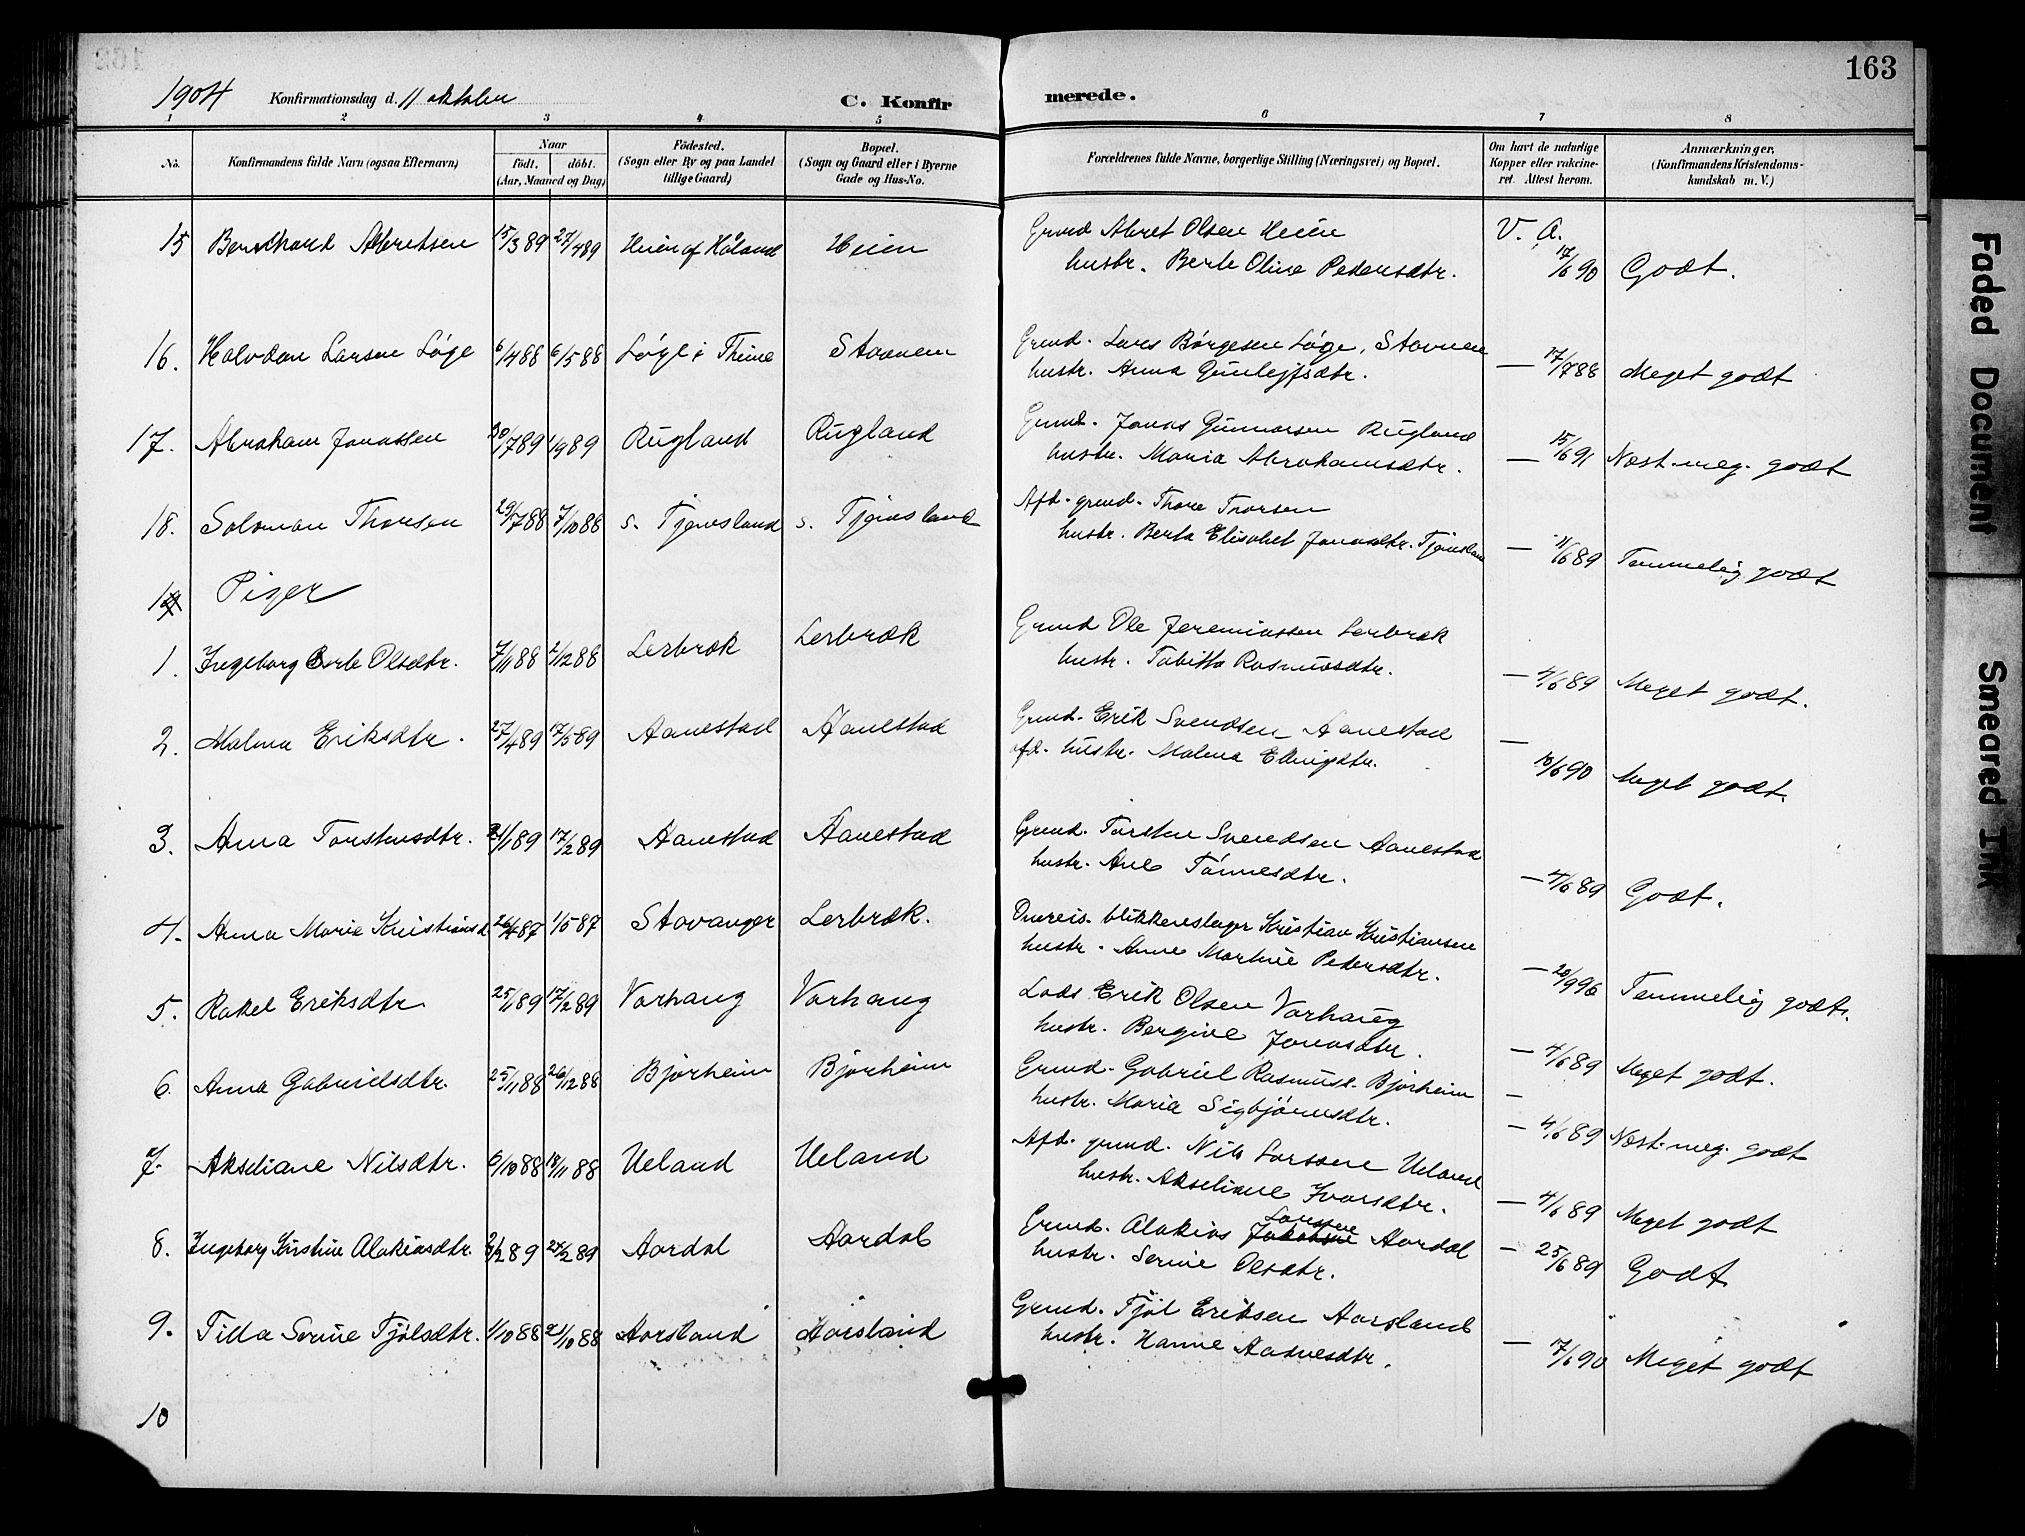 163
1904 Konfirmationsdag d. 11 oktober C. Konfirmerede.
1 2 3 4 5 6 7 8
No. Konfirmandens fulde Navn (ogsaa Efternavn) Naar født. døbt. (Aar, Maaned og Dag) Fødested. (Sogn eller By og paa Landet tillige Gaard) Bopæl. (Sogn og Gaard eller i Byerne Gade og Hus-No. Forældrenes fulde Navne, borgerlige Stilling (Næringsvei) og Bopæl. Om havt de naturlige Kopper eller vakcineret. Attest herom. Anmærkninger, (Konfirmandens Kristendomskundskab m. V.)
15 Berthard Abretsen 15/3 89 27/4 89 Heien af Håland Heien Grmd Abret Olsen Heien V. A.
hustr. Berte Oline Pedersdtr. 17/6 90 Godt.
16. Halvdan Larsen Løge 6/4 88 6/5 88 Løge i Thime Stavnem Grmd. Lars Børgesen Løge, Stavnem
hustr. Anna Gunlejfsdtr. — 17/7 88 Meget godt
17. Abraham Jonassen 30/7 89 1/9 89 Rugland Rugland Grmd. Jonas Gunnarsen Rugland
hustr. Maria Abrahamsdtr. — 15/6 91 Næst. meg. godt
18. Salomon Thorsen 29/7 88 7/10 88 s. Tjemsland s. Tjemsland Afd. grmd. Thore Torsen
hustr. Berta Elisabet Jonasdtr. Tjemsland — 11/6 89 Temmelig godt
19 Piger
1. Ingeborg Berte Olsdtr. 7/11 88 2/12 88 Lerbræk Lerbræk Grmd Ole Jeremiassen Lerbræk
hustr. Tabitta Rasmusdtr. — 4/6 89 Meget godt.
2. Malena Eriksdtr. 27/4 89 17/5 89 Aanestad Aanestad Grmd. Erik Svendsen Aanestad —
afd. hustr. Malena Ellingsdtr. 10/6 90 Meget godt.
3. Anna Torstensdtr. 21/1 89 17/2 89 Aanestad Aanestad Grmd. Torsten Svendsen Aanestad
hustr. Ane Tønnesdtr. — 4/6 89 Godt.
4. Anna Marie Kristiansd 26/4 87 1/5 87 Stavanger Lerbræk. Omreis. blikkenslager Kristian Kristiansen
hustr. Anne Martine Pedersdtr. — 20/9 96 Temmelig godt.
5. Rakel Eriksdtr 25/1 89 17/2 89 Varhaug Varhaug Lods Erik Olsen Varhaug
hustr. Bergive Jonasdtr. — 4/6 89 Meget godt.
6. Anna Gabrielsdtr. 25/11 88 26/12 88 Bjorheim Bjorheim Grmd. Gabriel Rasmuss. Bjorheim —
hustr. Maria Sigbjørnsdtr. — 4/6 89 Næst. meg. godt
7. Akseliane Nilsdtr. 6/10 88 18/11 88 Ueland Ueland Afd. grmd. Nils Larssen Ueland
hustr. Akseliane Ivarsdtr. — 4/6 89 Meget godt
8. Ingeborg Kristine Alakiasdtr. 2/2 89 24/2 89 Aardal Aardal Grmd. Alakias Jakobsen Larssen Aardal
hustr. Serine Olsdtr. — 25/6 89 Godt
9. Tilla Serine Tjølsdtr. 1/10 88 21/10 88 Aarsland Aarsland Grmd. Tjøl Eriksen Aarsland
hustr. Hanne Aadnesdtr. — 17/6 90 Meget godt
10
Faded Document
Smeared Ink